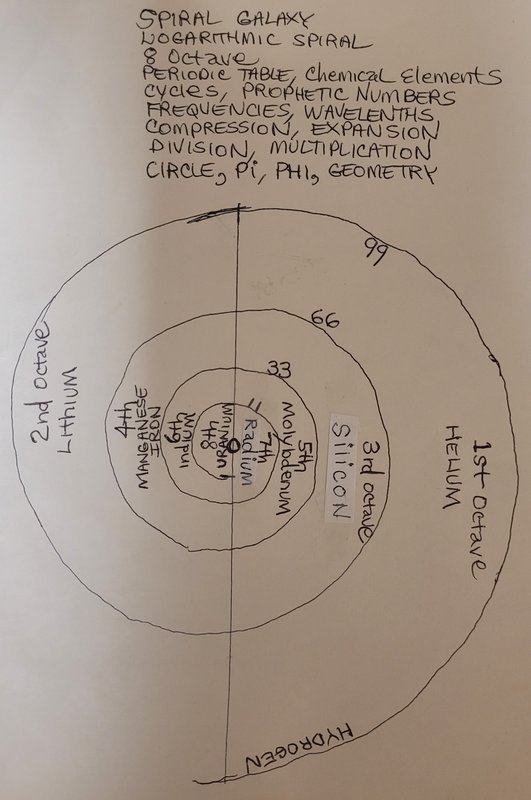 SPIRAL GALAXY
LOGARITHMIC SPIRAL
8 Octave
PERIODIC TABLE, Chemical Elements
Cycles, PROPHETIC NUMBERS
FREQUENCIES, WAVELENTHS
COMPRESSION, EXPANSION
DIVISION, MULTIPLICATION
CIRCLE, Pi, PHI, GEOMETRY
99
66
33
11
1st Octave
HELIUM
2nd Octave
LITHIUM
3rd octave
Silicon
4th
MANGANESE
IRON
5th
Molybdenum
6th
Indium
7th
Radium
8th
URANIUM
0
HYDROGEN